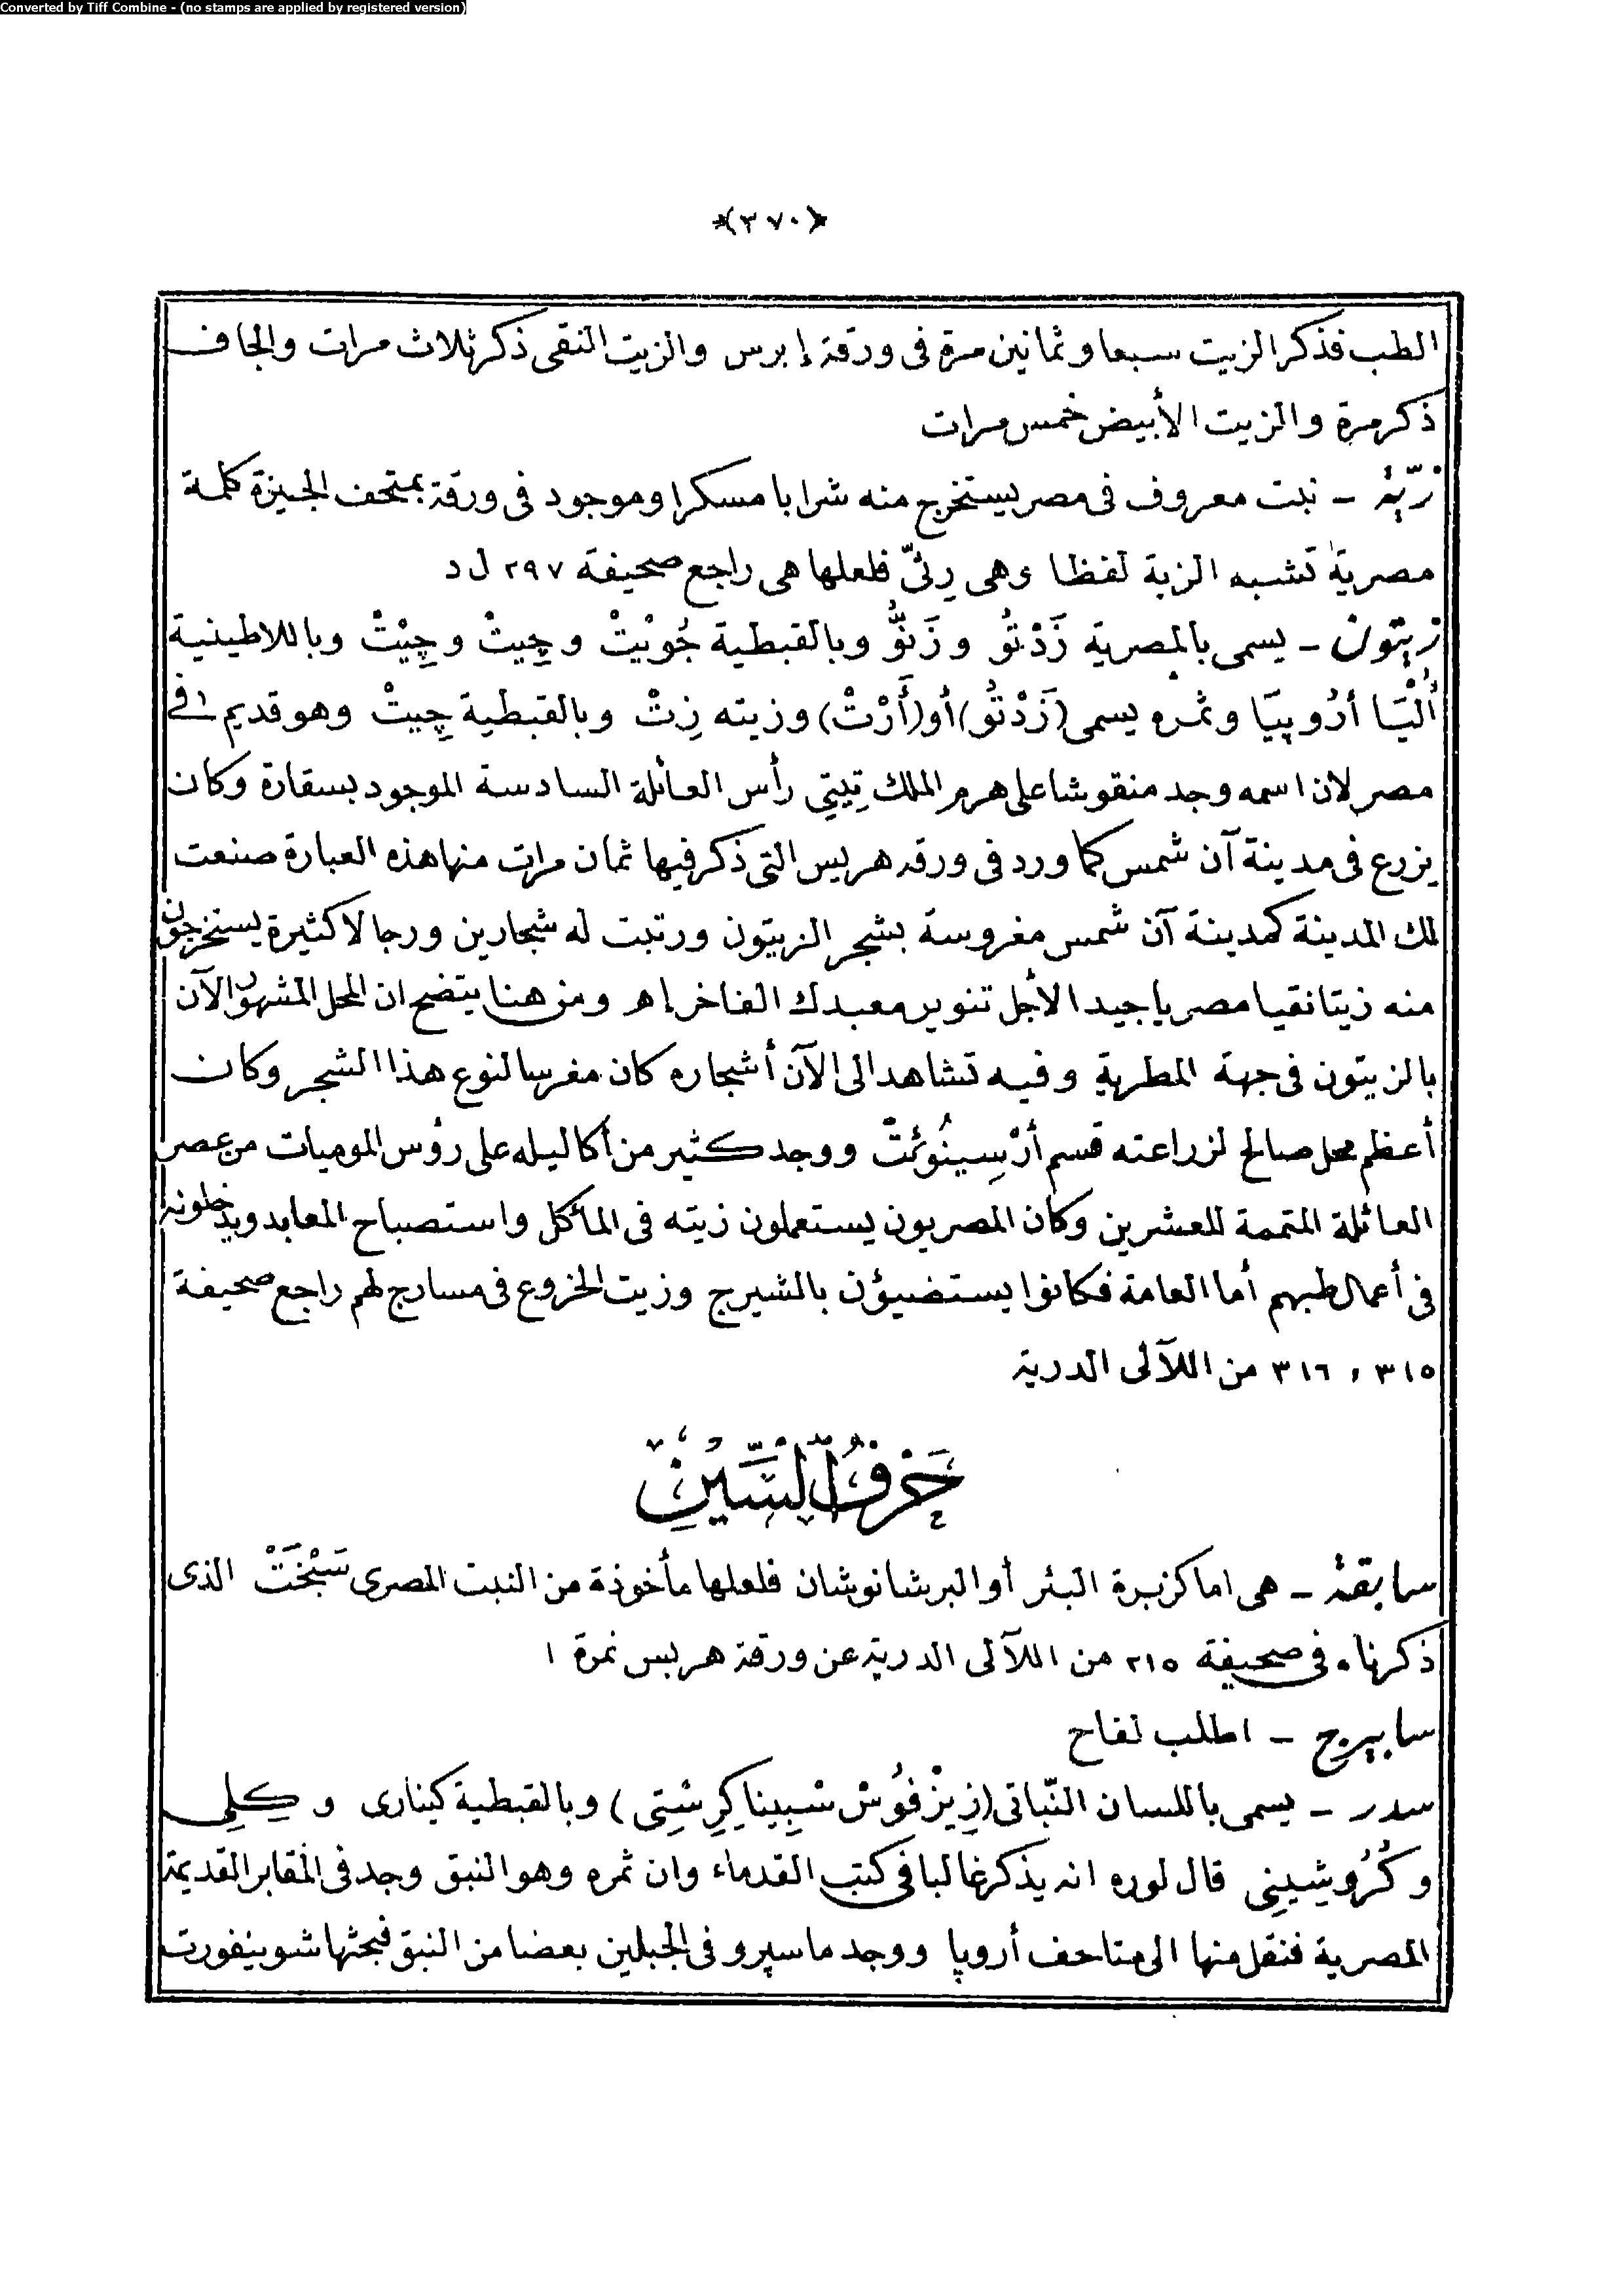 Converted by Tiff Combine - (no stamps are applied by registered version)
﴿٣٧٠﴾
الطب فذكر الزيت سبعا وثمانين مرة فى ورقة إبرس والزيت النقى ذكر ثلاث مرات والجاف
ذكر مرة والزيت الأبيض خمس مرات
زَيّة ـ نبت معروف فى مصر يستخرج منه شرابا مسكرا وموجود فى ورقة بمتحف الجيزة كلمة
مصرية تشبه الزية لفظا وهى رِئىّ فلعلها هى راجع صحيفة ٢٩٧ ل د
زيتون ـ يسمى بالمصرية زَدْتُو و زَنُّو وبالقبطية جُوِيْتْ و چِيتْ و چِيْتْ وباللاطينية
أُلْيَا أرُوپيَا وثمره يسمى (زَدْتُو) أو (أَرْتْ) وزيته زِتْ وبالقبطية چِيتْ وهو قديم فى
مصر لان اسمه وجد منقوشا على هرم الملك تِيتِي رأس العائلة السادسة الموجود بسقارة وكان
يزرع فى مدينة آن شمس كما ورد فى ورقه هريس التى ذكر فيها ثمان مرات منها هذه العبارة صنعت
لك المدينة كمدينة آن شمس مغروسة بشجر الزيتون ورتبت له شجارين ورجالا كثيرة يستخرجون
منه زيتا نقيا مصريا جيدا لأجل تنوير معبدك الفاخر إهـ ومن هنا يتضح ان المحل المشهور الآن
بالزيتون فى جهة المطرية وفيه تشاهد الى الآن أشجاره كان مغرسا لنوع هذا الشجر وكان
أعظم محل صالح لزراعته قسم أرْسِينُوئِتْ ووجد كثير من أكاليله على رؤس الموميات من عصر
العائلة المتممة للعشرين وكان المصريون يستعملون زيته فى المأكل واستصباح المعابد ويدخلونه
فى أعمال طبهم أما العامة فكانوا يستضيؤن بالشيرج وزيت الخروع فى مسارج لهم راجع صحيفة
٣١٥ ، ٣١٦ من اللآلى الدرية
حَرْفُ السِّينِ
سابقة ـ هى اما كزبرة البئر أو البرشانوشان فلعلها مأخوذة من النبت المصرى سَبْخَتْ الذى
ذكرناه فى صحيفة ٢١٥ من اللآلى الدرية عن ورقة هريس نمرة ١
سابيرج ـ اطلب تفاح
سدر ـ يسمى باللسان النّباتى (زِيزْفُوسْ سْبِينَا كِرِسْتِى) وبالقبطية كينارى و كِلِى
و كُرُوشِينِى قال لوره انه يذكر غالبا فى كتب القدماء وان ثمره وهو النبق وجد فى المقابر القديمة
المصرية فنقل منها الى متاحف أروپا ووجد ماسپرو فى الجبلين بعضا من النبق فبحثها شوينفورت